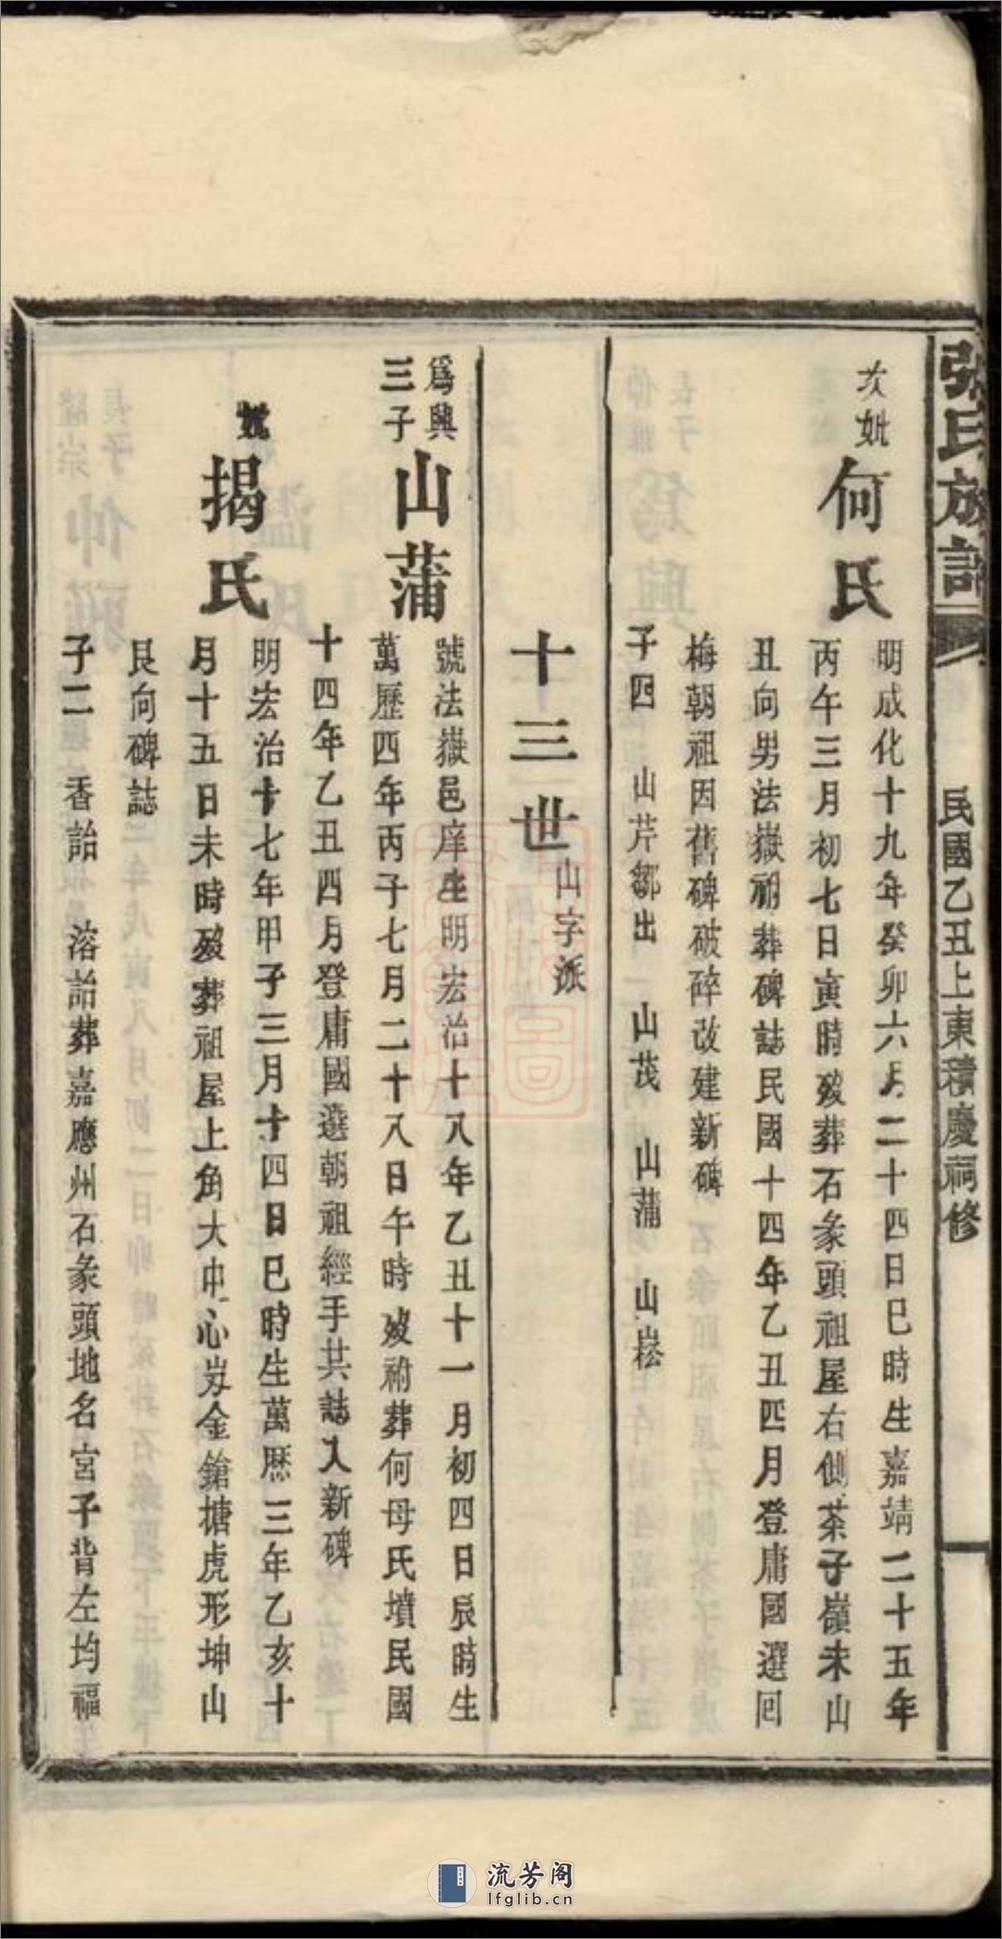 張氏族譜
民國乙丑上東積慶祠修
次妣
何氏
明成化十九年癸卯六月二十四日巳時生嘉靖二十五年
丙午三月初七日寅時歿葬石象頭祖屋右側茶子嶺未山
丑向男法嶽祔葬碑誌民國十四年乙丑四月登庸國選回
梅朝祖因舊碑破碎改建新碑
子四 山芹鄒出 山茂 山蒲 山崧
十三世山字派
為興
三子
山蒲
號法嶽邑庠生明宏治十八年乙丑十一月初四日辰時生
萬歷四年丙子七月二十八日午時歿祔葬何母氏墳民國
十四年乙丑四月登庸國選朝祖經手共誌入新碑
妣
揭氏
明宏治十七年甲子三月十四日巳時生萬歷三年乙亥十
月十五日未時歿葬祖屋上角大中心岃金鎗搪虎形坤山
艮向碑誌
子二 香詒 溶詒葬嘉應州石象頭地名宮子背左均福
流芳阁
lfglib.cn